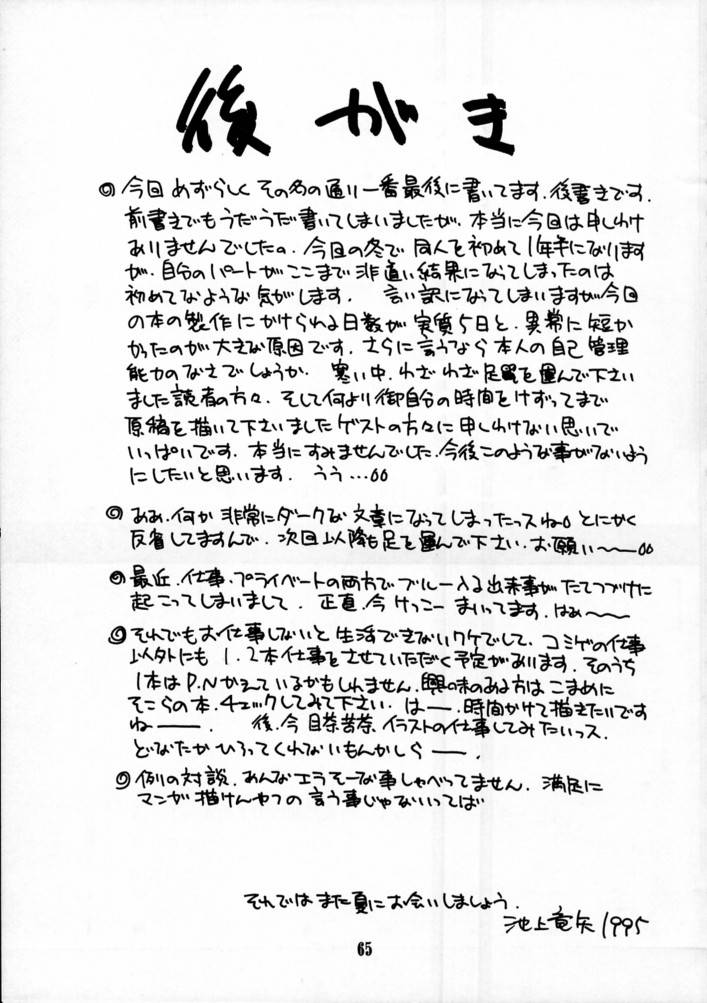 後がき
◎今回めずらしくその名の通り一番最後に書いてます.後書きです.
前書きでもうだうだ書いてしまいましたが、本当に今回は申しわけ
ありませんでしたの.今回の冬で同人を初めて1年半になります
が、自分のパートがここまで非道い結果になってしまったのは
初めてなような気がします. 言い訳になってしまいますが今回
の本の製作にかけられる日数が実質5日と、異常に短か
かったのが大きな原因です.さらに言うなら本人の自己管理
能力のなさでしょうか. 寒い中.わざわざ足を運んで下さい
ました読者の方々、そして何より御自分の時間をけずってまで
原稿を描いて下さいましたゲストの方々に申しわけない思いで
いっぱいです.本当にすみませんでした.今後このような事がないよう
にしたいと思います. うぅ…。。
◎ああ.何か非常にダークな文章になってしまったっスね。とにかく
反省してますんで.次回以降も足を運んで下さい.お願い〜〜。。
◎最近.仕事.プライベートの両方でブルー入る出来事がたてつづけに
起こってしまいまして. 正直.今けっこーまいってます.はぁ〜〜
◎それでもお仕事しないと生活できないワケでして、コミゲの仕事
以外にも1.2本仕事をさせていただく予定があります.そのうち
1本はP.Nかえているかもしれません.興味のある方はこまめに
そこらの本.チェックしてみて下さい. はー.時間かけて描きたいです
ねー. 後.今目茶苦茶イラストの仕事してみたいっス.
どなたかひろってくれないもんかしらー.
◎例の対談.あんなエラそーな事しゃべってません. 満足に
マンガ描けんやつの言う事じゃないってば
それではまた夏にお会いしましょう.
池上竜矢1995
65